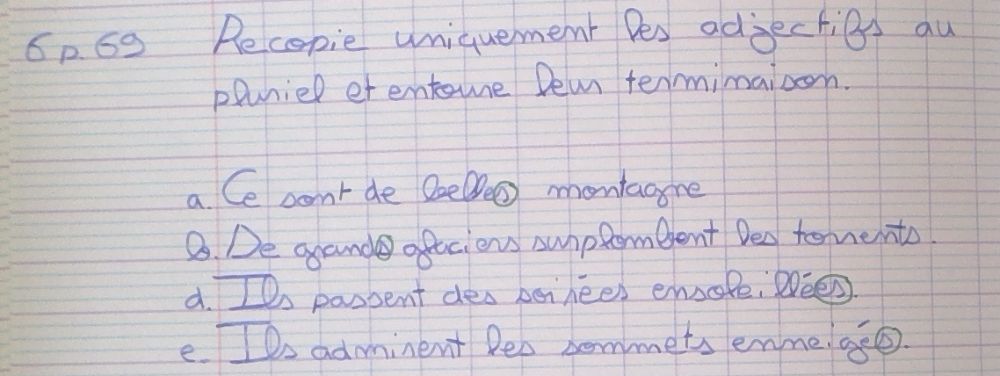 6 p. 69 Recopie uniquement les adjectifs au
pluriel et entoure leur terminaison.
a. Ce sont de belles montagne
b. De grands glaciers surplombent les torrents.
d. Ils passent des soirées ensoleillées.
e. Ils admirent les sommets enneigés.